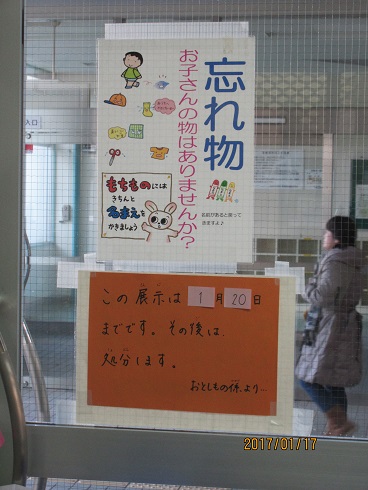 忘れ物
お子さんの物はありませんか?
もちものには
きちんと
なまえを
かきましょう
名前があると戻って
きますよ♪
この展示は 1月20日
までです。その後は、
処分します。
おとしもの係より
入口
2017/01/17